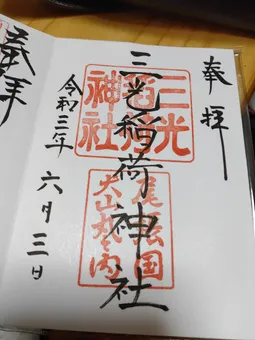 奉拝
三光稲荷神社
三光
稲荷
神社
尾張国
犬山丸之内
令和三年
六月三日
奉拝